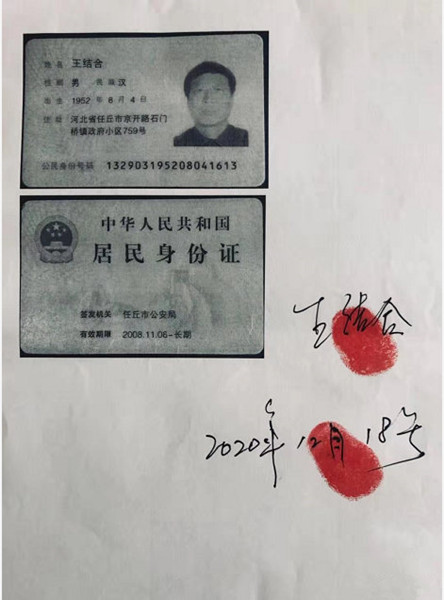 姓名 王结合
性别 男 民族 汉
出生 1952 年 8 月 4 日
住址 河北省任丘市京开路石门
桥镇政府小区759号
公民身份号码 132903195208041613
中华人民共和国
居民身份证
签发机关 任丘市公安局
有效期限 2008.11.06-长期
王结合
2020年12月18号